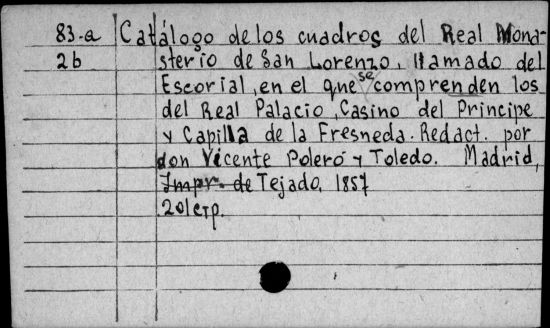 83-a Catálogo de los cuadros del Real Mona-
2b sterio de San Lorenzo, llamado del
Escorial, en el que se comprenden los
del Real Palacio, Casino del Principe
y Capilla de la Fresneda. Redact. por
don Vicente Poleró y Toledo. Madrid,
Impr. de Tejado, 1857
201 стр.